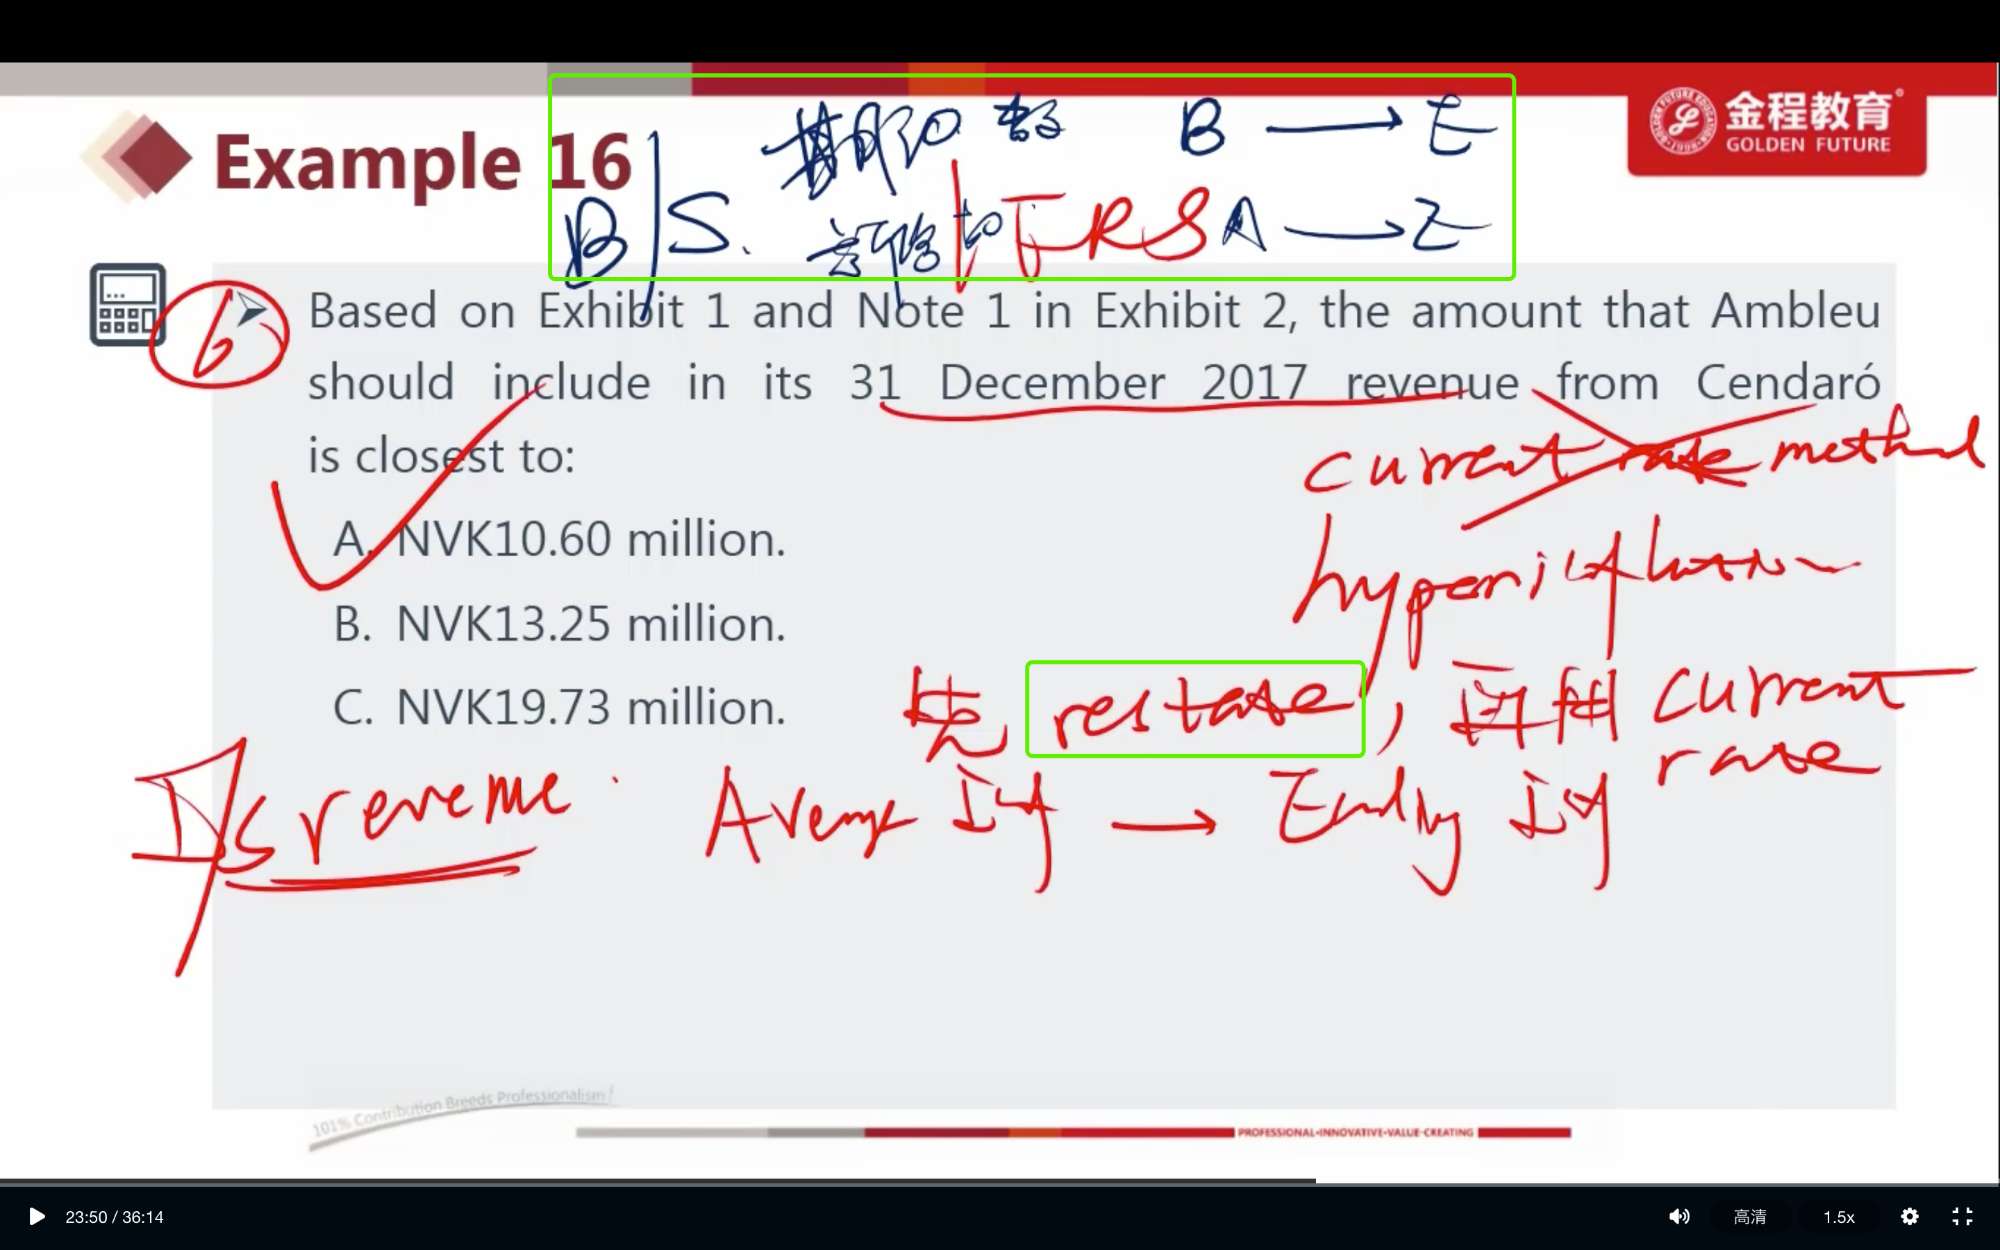 金程教育
GOLDEN FUTURE
Example 16
B → E
B/S. IFRS A → E
6
Based on Exhibit 1 and Note 1 in Exhibit 2, the amount that Ambleu
should include in its 31 December 2017 revenue from Cendaró
is closest to:
current rate method
A. NVK10.60 million.
hyperinflation
B. NVK13.25 million.
C. NVK19.73 million.
先 restate, 再用 current
rate
I/S revenue
Average → Ending
101% Contribution Breeds Professionalism!
PROFESSIONAL•INNOVATIVE•VALUE-CREATING
23:50 / 36:14
高清
1.5x